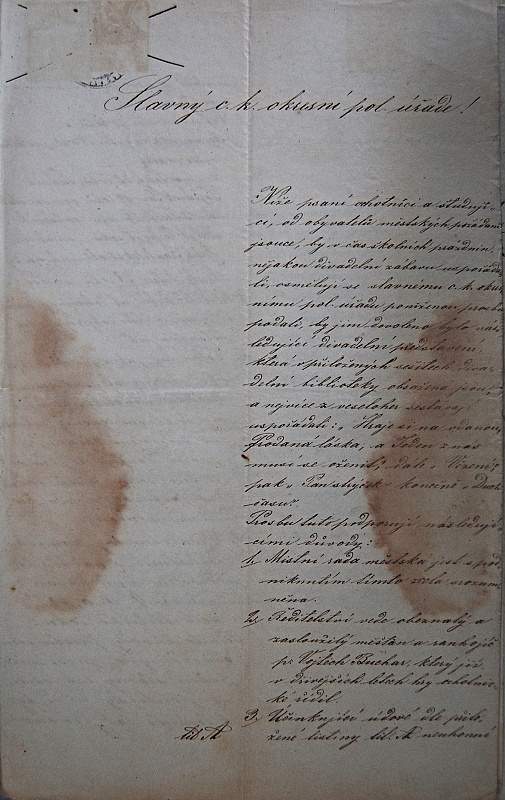 Slavný c. k. okresní pol. úřade!
Níže psaní ochotníci a studují-
cí, od obyvatelů městských požádáni
jsouce, by v čas školních prázdnin
nějakou divadelní zábavu uspořáda-
li, osmělují se slavnému c. k. okres-
nímu pol. úřadu poníženou prosbu
podati, by jim dovoleno bylo násl-
edující divadelní představení,
která v přiložených sešitech diva-
delní biblioteky obsažena jsou,
a nejvíce z veseloher sestávají
uspořádati: „Hraje si na vdanou,
Prodaná láska, a Jeden z nás
musí se oženit, dále „Vězení"
pak „Pan strýček" konečně „Duch
času".
Prosbu tuto podporují následují-
cími důvody:
1, Místní rada městská jest s pod-
niknutím tímto zcela srozum-
něna.
2, Ředitelství vede obeznalý a
zasloužilý měšťan a ranhojič
p. Vojtěch Buchar, který již
v dřívějších letech hry ochotnic-
ké řídil.
3, Účinkující údové dle přilo-
lit. A
žené listiny lit. A. neuhonní